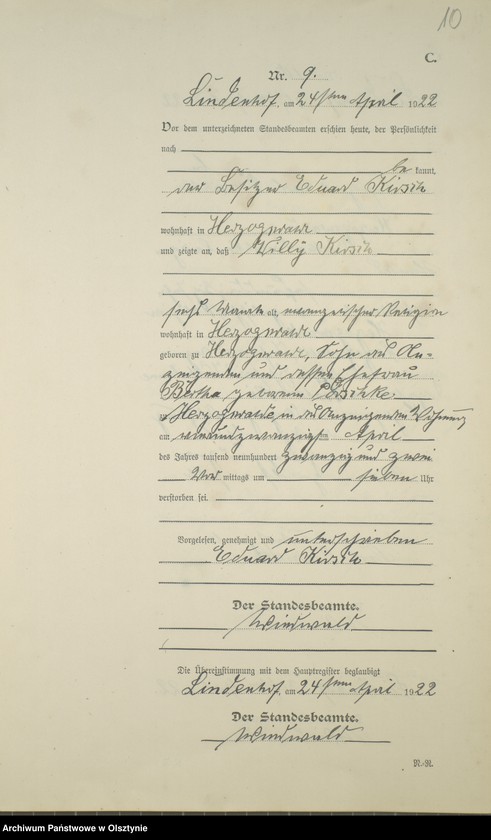 10
C.
Nr. 9.
Lindenhof, am 24ten April 1922
Vor dem unterzeichneten Standesbeamten erschien heute, der Persönlichkeit
nach
be kannt,
der Besitzer Eduard Kirsch
wohnhaft in Herzogswalde
und zeigte an, daß Willy Kirsch
sechs Monate alt, evangelischer Religion
wohnhaft in Herzogswalde
geboren zu Herzogswalde, Sohn des An-
zeigenden und dessen Ehefrau
Bertha geborenen
zu Herzogswalde in des Anzeigenden Wohnung
am vierundzwanzigsten April
des Jahres tausend neunhundert zwanzig und zwei
Vor mittags um sieben Uhr
verstorben sei.
Vorgelesen, genehmigt und unterschrieben
Eduard Kirsch
Der Standesbeamte.
Die Übereinstimmung mit dem Hauptregister beglaubigt
Lindenhof, am 24ten April 1922
Der Standesbeamte.
N.-R.
Archiwum Państwowe w Olsztynie